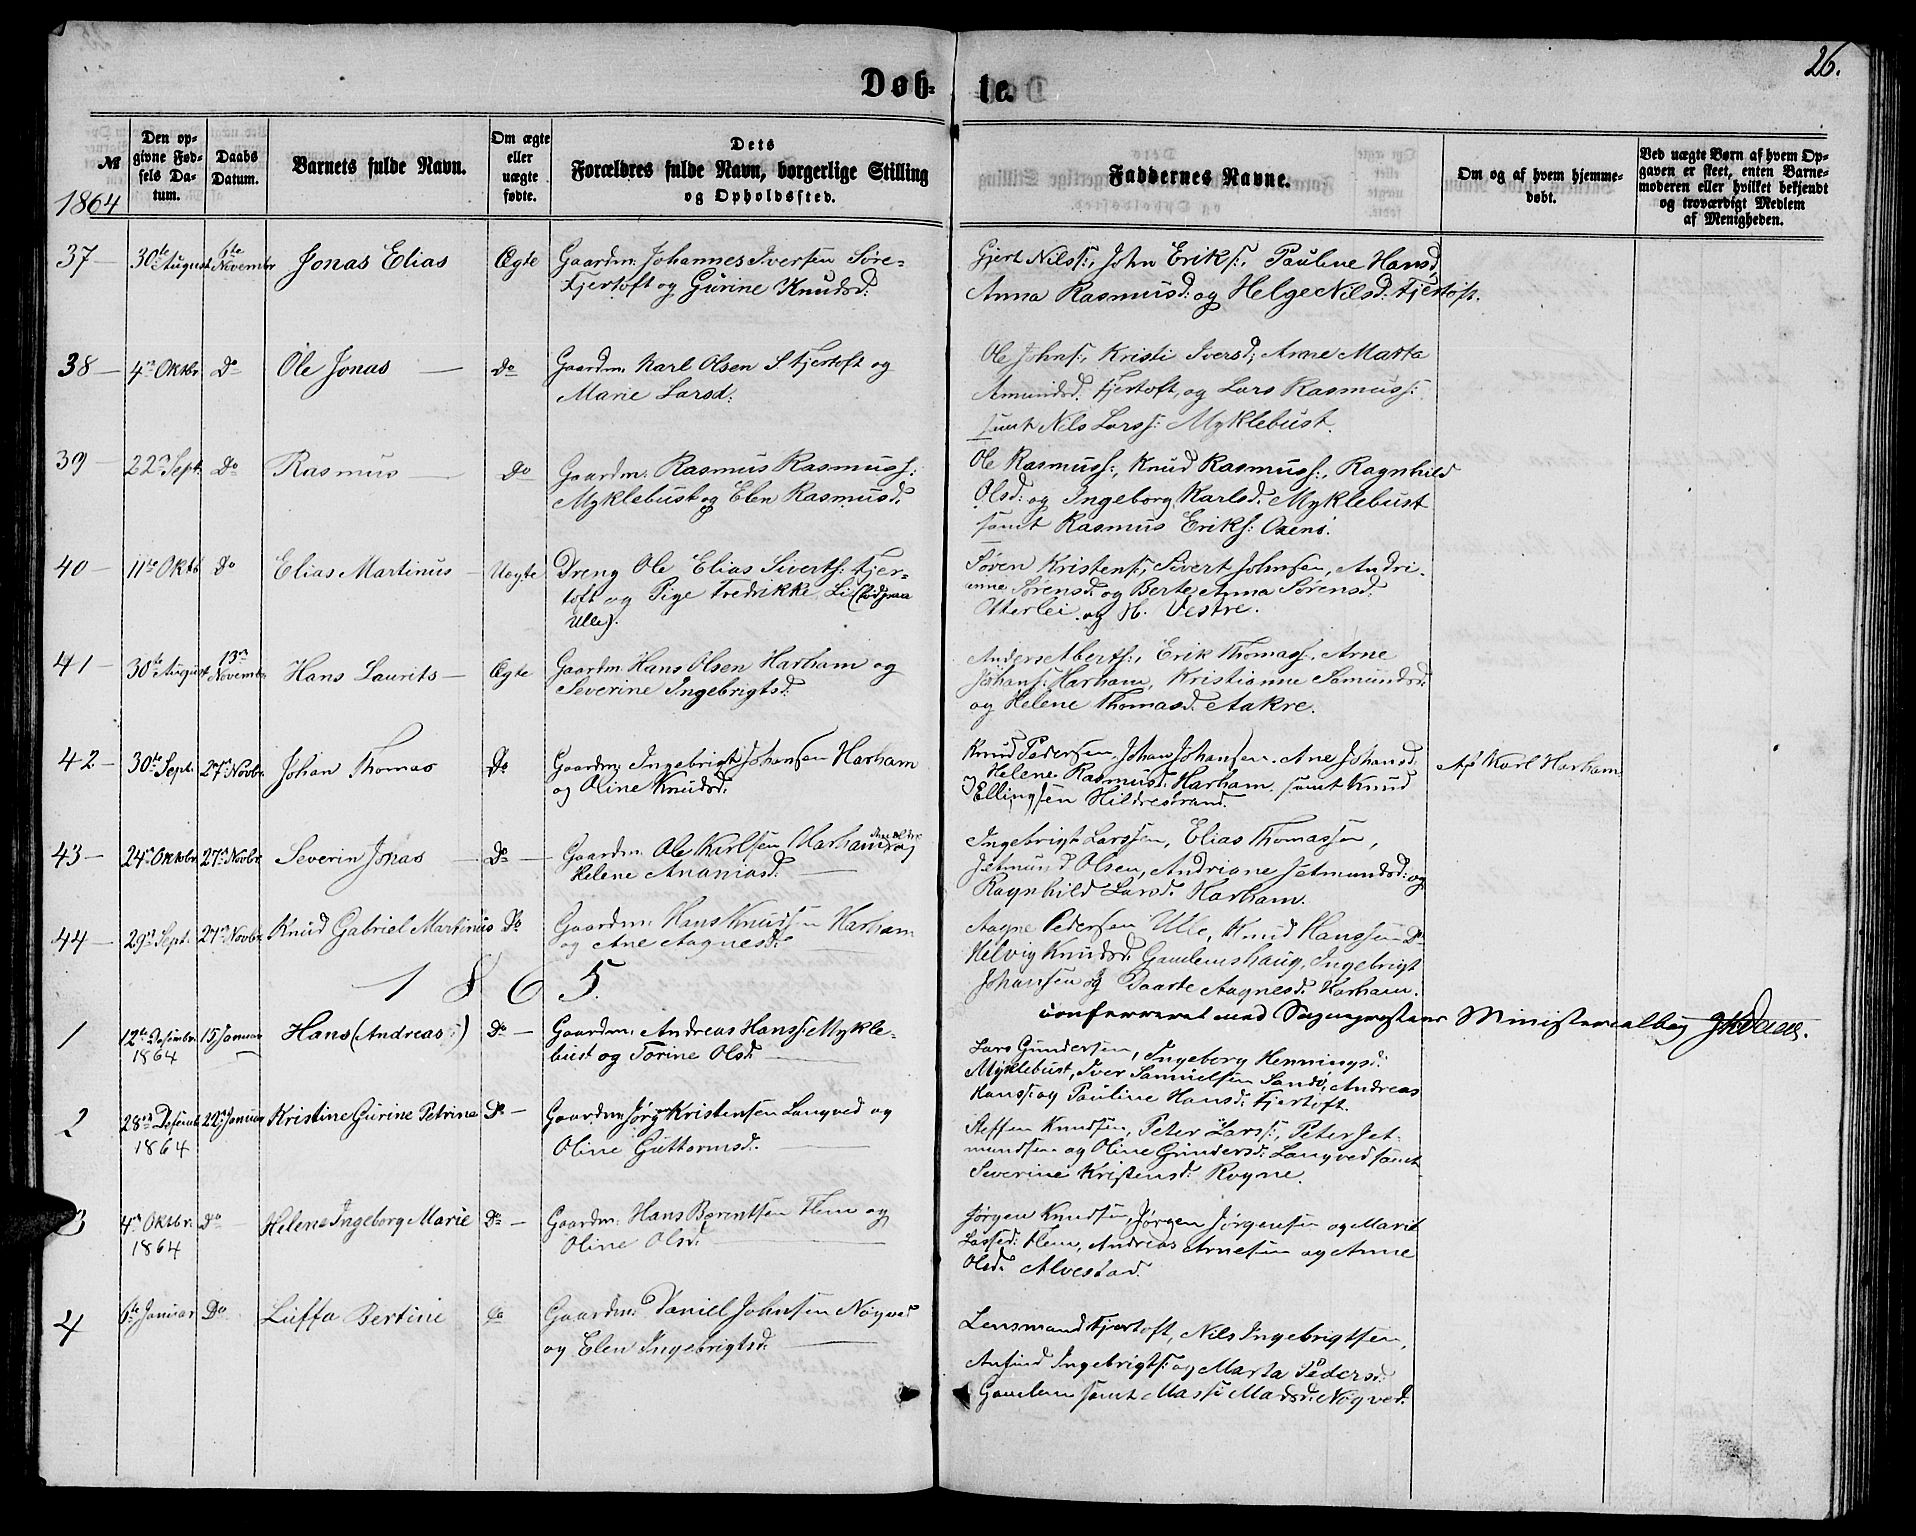 26.
Døb-te.
№
Den op-
givne Fød-
sels Da-
tum.
Daabs
Datum.
Barnets fulde Navn.
Om ægte
eller
uægte
fødte.
Dets
Forældres fulde Navn, borgerlige Stilling
og Opholdssted.
Faddernes Navne.
Om og af hvem hjemme-
døbt.
Ved uægte Børn af hvem Op-
gaven er skeet, enten Barne-
moderen eller hvilket bekjendt
og troværdigt Medlem
af Menigheden.
1864
37 — 30te August 6te Novembr Jonas Elias Ægte
Gaardm: Johannes Iversen Søre-
Fjertoft og Gurine Knudsd:
Gjert Nilss:, John Eriks:, Pauline Hansd,
Anna Rasmusd: og Helge Nilsd: Fjertoft.
38 — 4de Oktbr. Do Ole Jonas — Do
Gaardm. Karl Olsen S. Fjertoft og
Marie Larsd:
Ole Johns:, Kristi Iversd:, Anne Marta
Amundsd. Fjertoft, og Lars Rasmuss:
samt Nils Larss: Myklebust.
39 — 22de Sept. Do Rasmus — Do
Gaardm: Rasmus Rasmuss:
Myklebust og Elen Rasmusd.
Ole Rasmuss:, Knud Rasmuss:, Ragnhild
Olsd: og Ingeborg Karlsd. Myklebust
samt Rasmus Eriks: Oxenö.
40 — 11te Oktb Do Elias Martinus — Uegte
Dreng Ole Elias Siverts: Fjer-
toft og Pige Fredrikke Li (född paa
Ulle).
Søren Kristens:, Sivert Johnsen, Andri-
anne Sørensd. og Berte Anna Sørensd.
Otterlei og H. Vestre.
41 — 30te August 13de Novembr Hans Laurits — Ægte
Gaardm: Hans Olsen Harham og
Severine Ingebrigtsd:
Anders Alberts:, Erik Thomass:, Arne
Johans: Harham, Kristianne Samundsd:
og Helene Thomasd. Aakre.
42 — 30te Sept. 27de Novbr. Johan Thomas Do
Gaardm: Ingebrigt Johansen Harham
og Oline Knudsd:
Knud Pedersen, Johan Johansen, Ane Johansd.
Helene Rasmusd: Harham, samt Knud
Ellingsen Hildrestrand.
Af Karl Harham
43 — 24de Oktobr 27de Novbr. Severin Jonas — Do —
Gaardm: Ole Karlsen Harham og
Helene Ananiasd: —
Ingebrigt Larssen, Elias Thomassen,
Jetmund Olsen, Andriane Jetmundsd: og
Ragnhild Larsd. Harham.
44 — 29de Sept. 27de Novbr. Knud Gabriel Martinus Do
Gaardm: Hans Knudsen Harham
og Ane Aagnesd:
Aagne Pedersen Ulle, Knud Hanssen Do
Helvig Knudsd: Gamlemshaug, Ingebrigt
Johansen og Daarte Aagnesd. Harham.
1865.
Confereret med Sognepræstens Ministerialbog
1 12te Desembr. 1864 15 Januar Hans (Andreas:) Do —
Gaardm: Andreas Hanss: Mykle-
bust og Torine Olsd: —
Lars Gundersen, Ingeborg Henningsd:
Myklebust, Iver Samuelsen Sandö, Andreas
Hans: og Pauline Hansd: Fjertoft.
2 28de Desemb. 1864 22de Januar Kristine Gurine Petrine Do —
Gaardm: Jørgen Kristensen Langved og
Oline Guttormsd: —
Steffen Knudsen, Peter Larss:, Peter Jet-
mundsen og Oline Gundersd: Langved samt
Severine Kristensd: Rogne.
3 4de Oktbr. 1864 Do Helene Ingeborg Marie Do —
Gaardm: Hans Berentsen Flem og
Oline Olsd: —
Jørgen Knudsen, Jørgen Jørgensen og Marit
Lassed: Flem, Andreas Arnesen og Anne
Olsd: Alvestad.
4 6te Januar Do Luffa Bertine Do
Gaardm: Daniel Johnsen Nogved
og Elen Ingebrigtsd: —
Lensmand Fjertoft, Nils Ingebrigtsen,
Anfind Ingebrigts: og Marta Pedersd:
Gamlem samt Massi Madsd: Nogved.